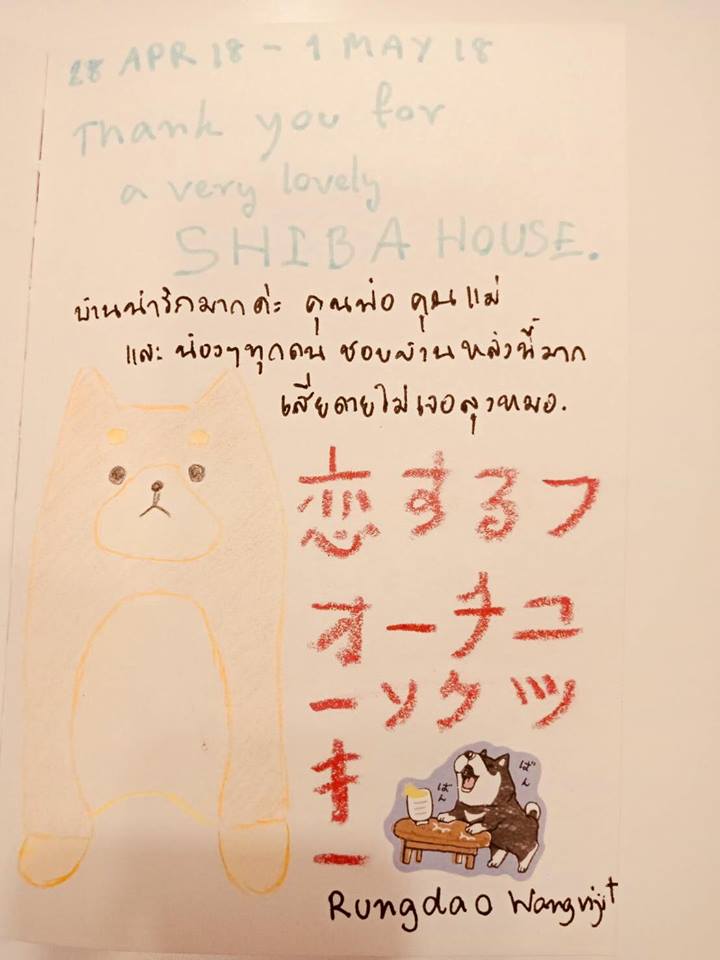 28 APR 18 - 1 MAY 18
Thank you for
a very lovely
SHIBA HOUSE.
บ้านน่ารักมากค่ะ คุณพ่อ คุณแม่
และ น้องๆทุกคน ชอบบ้านหลังนี้มาก
เสียดายไม่เจอลุงหมอ.
恋するフ
ォーチュ
ーンクッ
キー
ばん
ばん
Rungdao Wangvijit